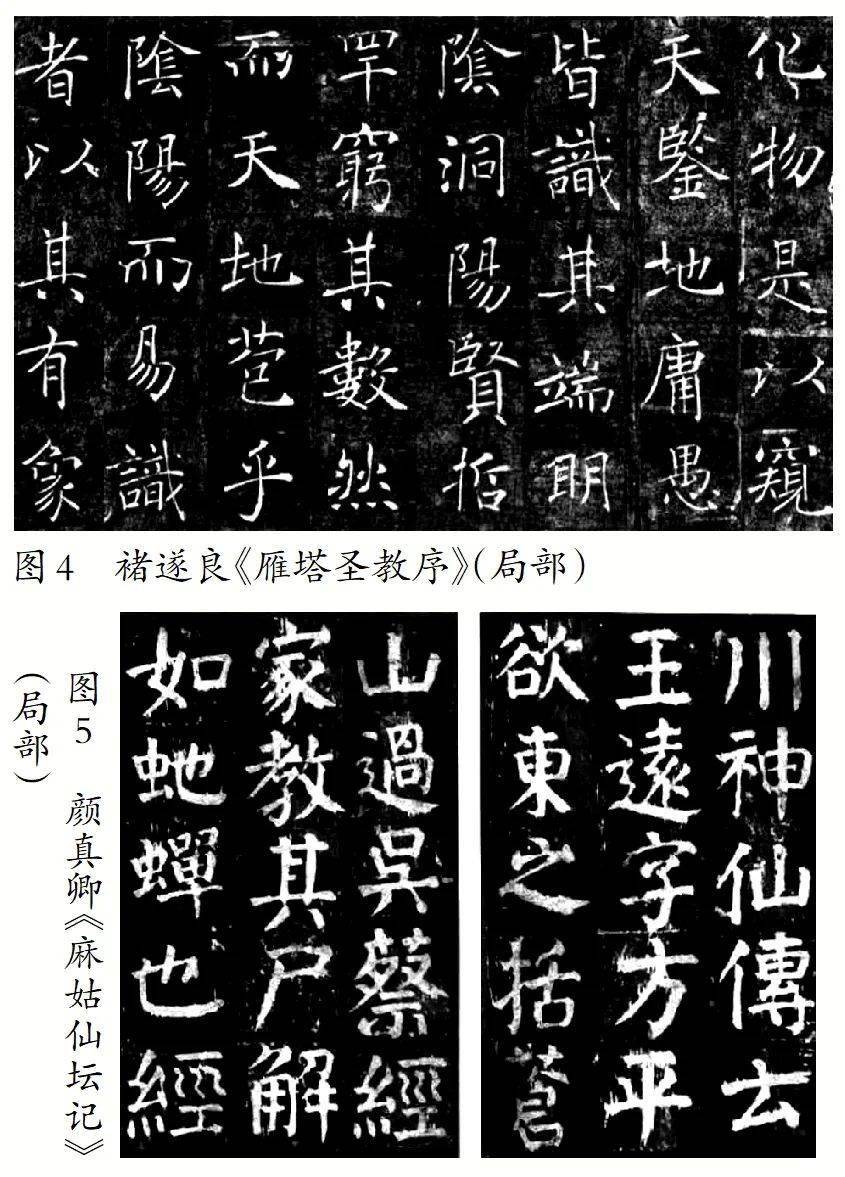 化物是以窺
天鑒地庸愚
皆識其端明
陰洞陽賢哲
罕窮其數然
而天地苞乎
陰陽而易識
者以其有象
图4 褚遂良《雁塔圣教序》(局部)
川神仙傳云
王遠字方平
欲東之括蒼
山過吳蔡經
家教其尸解
如虵蟬也經
图5 颜真卿《麻姑仙坛记》
(局部)